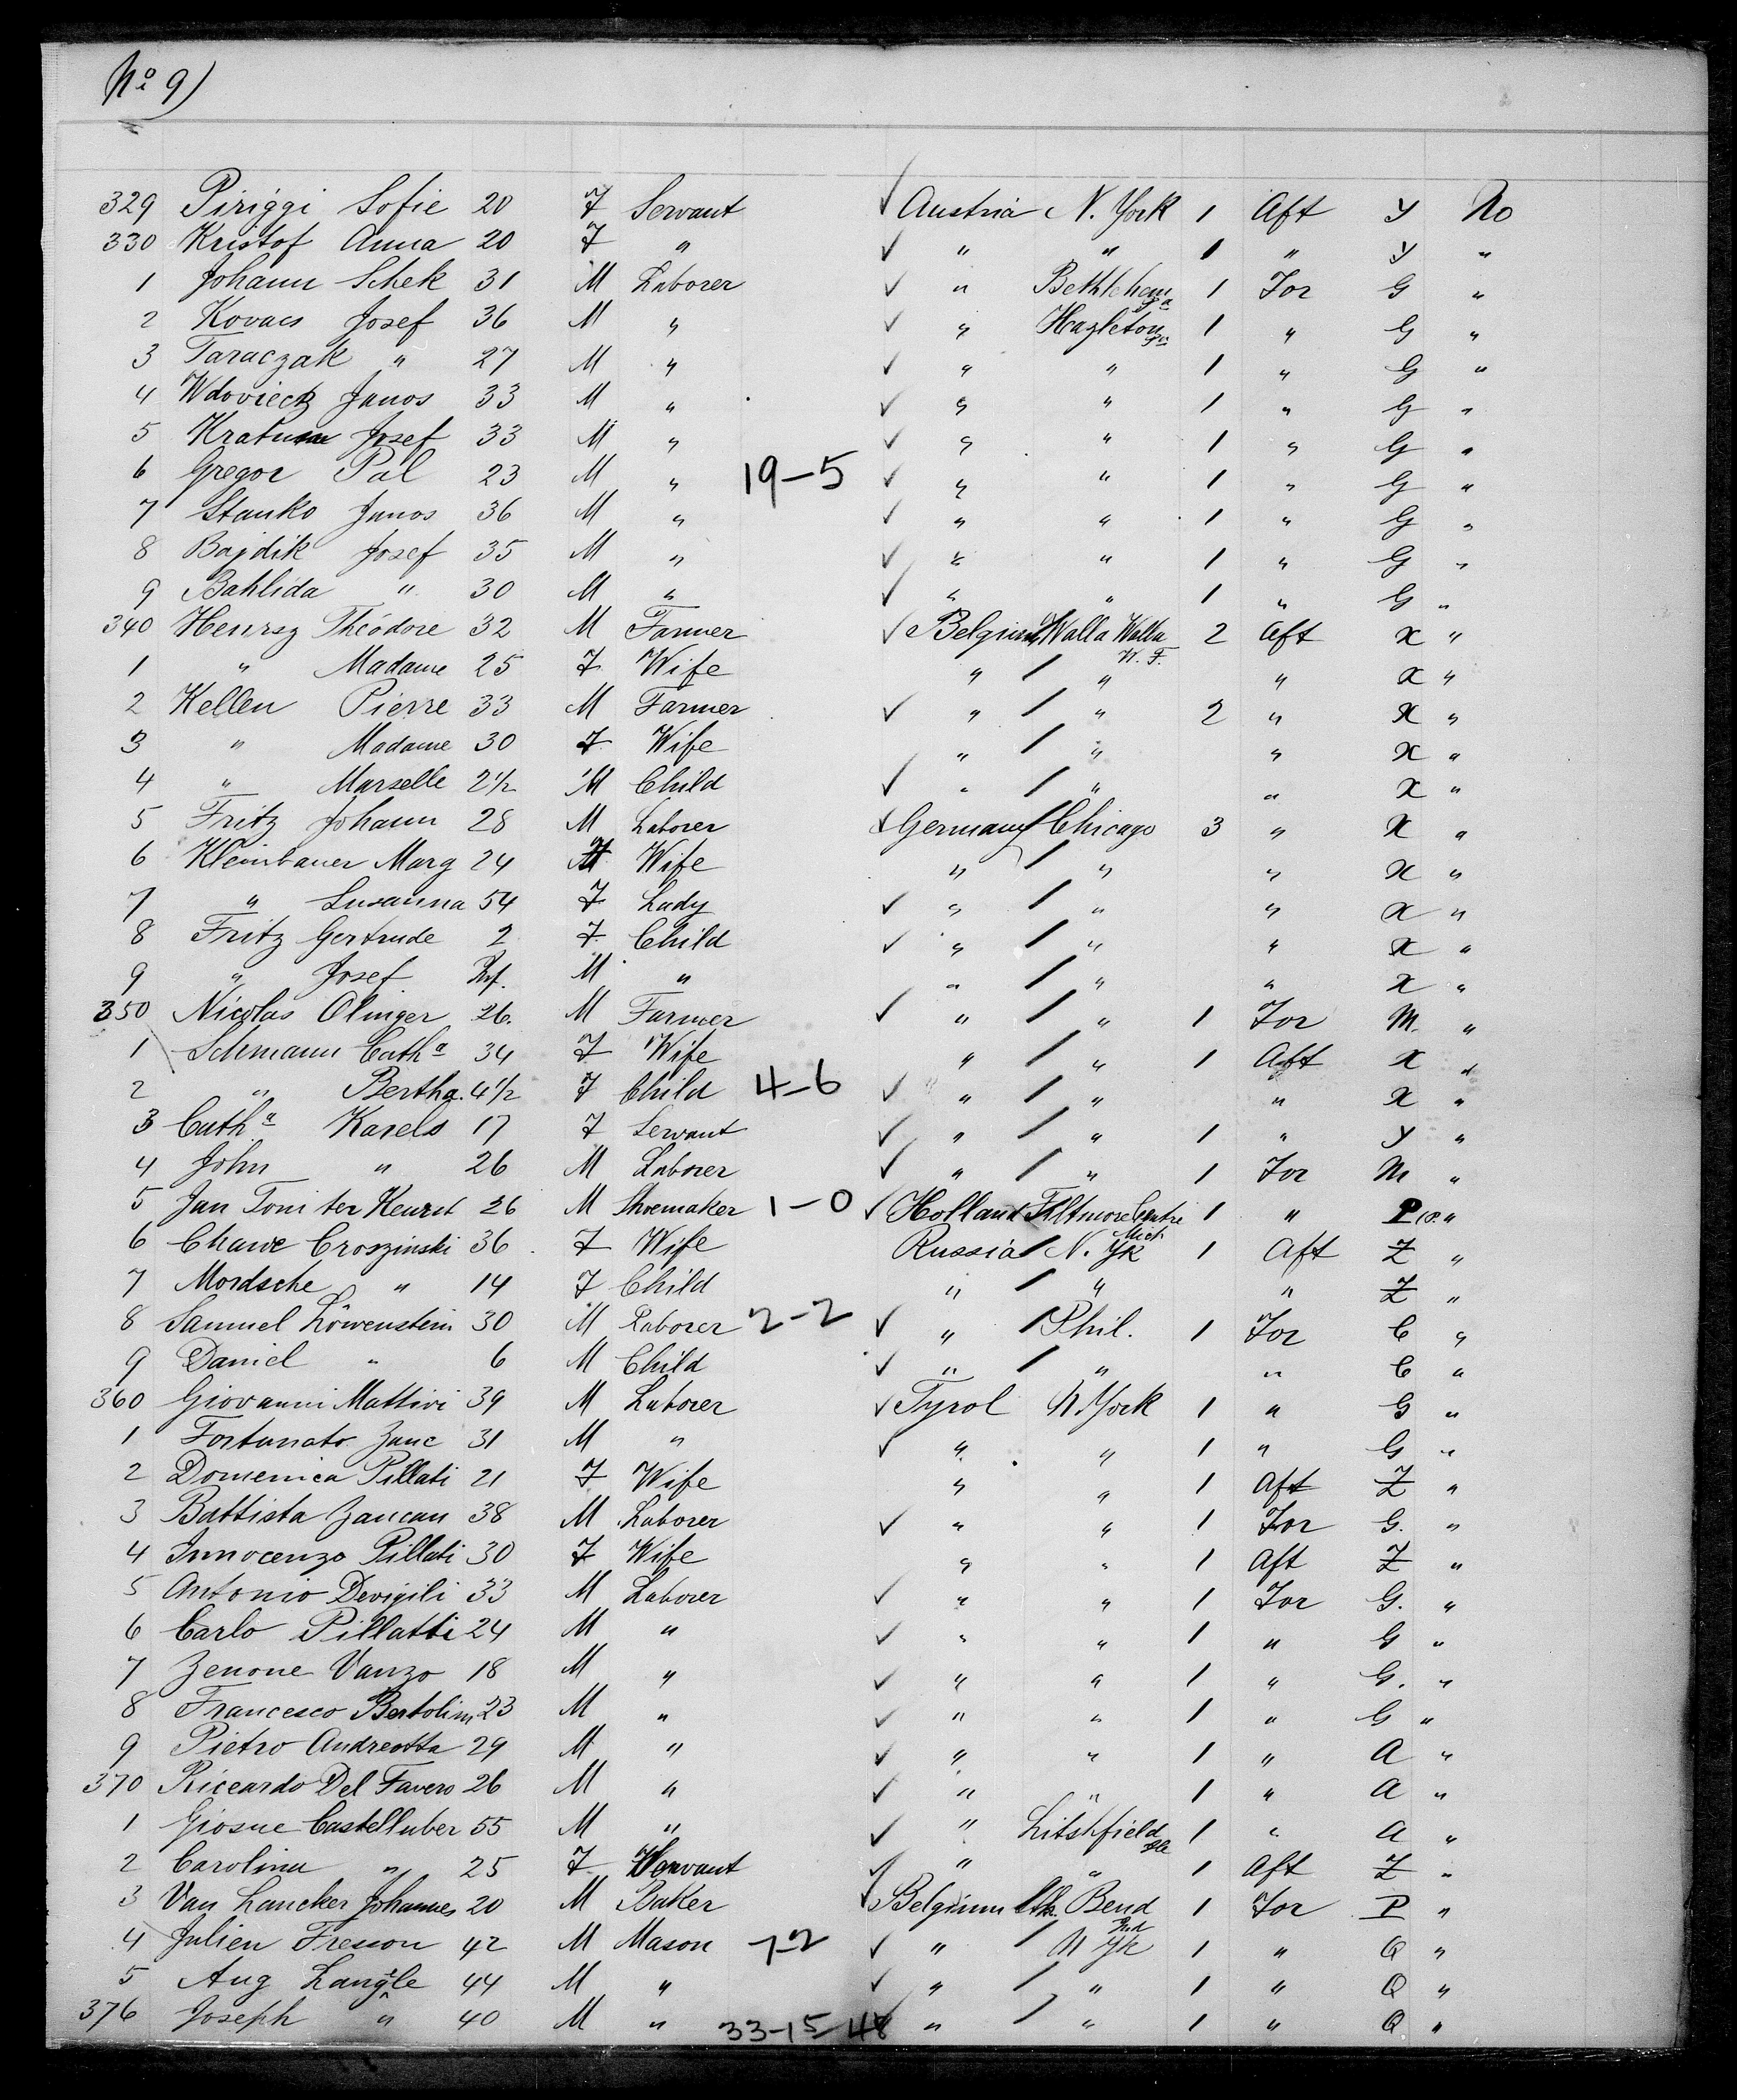 No 9)
329 Piriggi Sofie 20 F Servant ✓ Austria N. York 1 Aft Y No
330 Kristof Anna 20 F " ✓ " " 1 " Y "
1 Johann Schek 31 M Laborer ✓ " Bethlehem Pa 1 For G "
2 Kovacs Josef 36 M " ✓ " Hazleton Pa 1 " G "
3 Taraczak " 27 M " ✓ " " 1 " G "
4 Wdovieck Janos 33 M " ✓ " " 1 " G "
5 Josef 33 M " ✓ " " 1 " G "
6 Gregor Pal 23 M " 19-5 ✓ " " 1 " G "
7 Stanko Janos 36 M " ✓ " " 1 " G "
8 Bajdik Josef 35 M " ✓ " " 1 " G "
9 Bahlida " 30 M " ✓ " " 1 " G "
340 Henrsy Théodore 32 M Farmer ✓ Belgium Walla Walla W. T. 2 Aft X "
1 " Madame 25 F Wife " / " " X "
2 Kellen Pierre 33 M Farmer ✓ " / " 2 " X "
3 " Madame 30 F Wife " / " " X "
4 " Marselle 2 1/2 M Child ✓ " / " " X "
5 Fritz Johann 28 M Laborer ✓ Germany / Chicago 3 " X "
6 Kleinbauer Marg 24 F Wife " / " " X "
7 " Susanna 54 F Lady ✓ " / " " X "
8 Fritz Gertrude 2 F Child ✓ " / " " X "
9 " Josef Inf. M " " / " " X "
350 Nicolas Olinger 26. M Farmer ✓ " / " 1 For M. "
1 Schmann Catha 34 F Wife " / " 1 Aft X "
2 " Bertha. 4 1/2 F Child 4-6 ✓ " / " " X "
3 Catha Karels 17 F Servant ✓ " / " 1 " Y "
4 John " 26 M Laborer ✓ " / " 1 For M "
5 Jan Toni ter Keurst 26 M Shoemaker 1-0 ✓ Holland Filtmore Centre Mich 1 " P "
6 Chawe Croszinski 36 F Wife Russia / N. Yk 1 Aft Z "
7 Mordsche " 14 F Child " / " " Z "
8 Samuel Löwenstein 30 M Laborer 2-2 ✓ " / Phil. 1 For C "
9 Daniel " 6 M Child ✓ " / " " C "
360 Giovanni Mattivi 39 M Laborer ✓ Tyrol N. York 1 " G "
1 Fortunato Zanc 31 M " ✓ " " 1 " G "
2 Domenica Pillati 21 F Wife " " 1 Aft Z "
3 Battista Zancan 38 M Laborer ✓ " " 1 For G. "
4 Innocenzo Pillati 30 F Wife " " 1 Aft Z "
5 Antonio Devigili 33 M Laborer ✓ " " 1 For G. "
6 Carlo Pillatti 24 M " ✓ " " 1 " G "
7 Zenone Vanzo 18 M " ✓ " " 1 " G. "
8 Francesco Bertolini 23 M " ✓ " " 1 " G "
9 Pietro Andreotta 29 M " ✓ " " 1 " A "
370 Riccardo Del Favero 26 M " ✓ " " 1 " A "
1 Giosue Castelluber 55 M " ✓ " Litshfield 1 " A "
2 Carolina " 25 F Servant ✓ " " 1 Aft Z "
3 Van Lancker Johannes 20 M Baker ✓ Belgium Sth. Bend Ind 1 For P "
4 Julien Fresson 42 M Mason 7-2 ✓ " / N Yk 1 " Q "
5 Aug Langle 44 M " ✓ " / " 1 " Q "
376 Joseph " 40 M " 33-15 48 ✓ " / " 1 " Q "